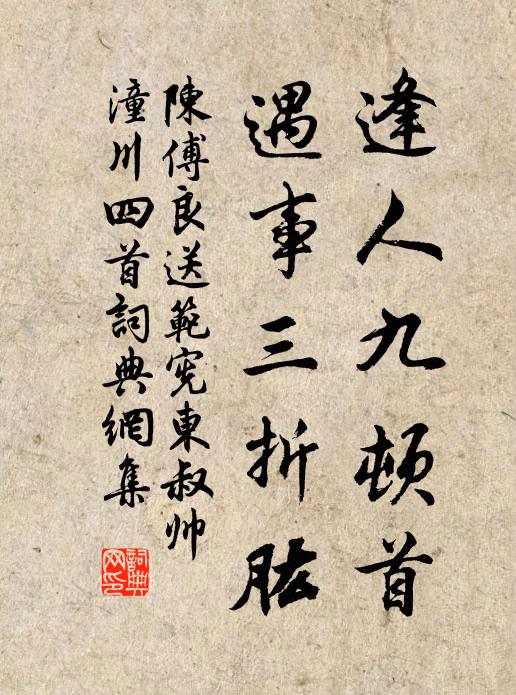 逢人九頓首
遇事三折肱
陳傅良送範宪東叔帅
潼川四首詞典網集
詞典
网印